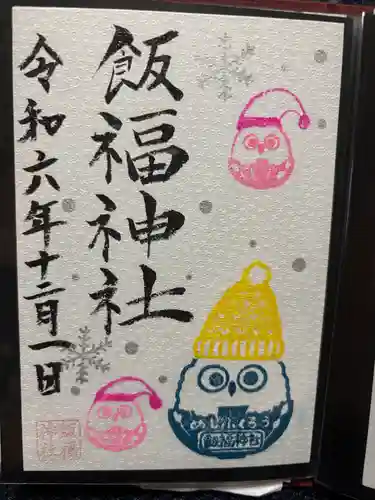 飯福神社
令和六年十二月一日
飯福
神社
めしふくろう
飯福神社